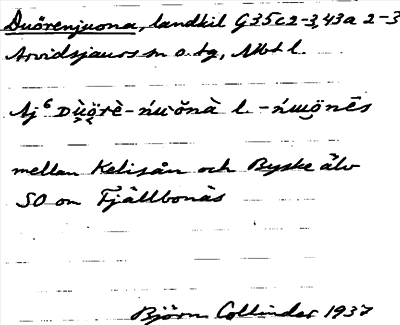 Duörenjuona, landkil G35c2-3, 43a 2-3
Arvidsjaurs sn o. tg, Nbt l.
Aj⁶ Dùö̀rè-ńuŏnà l. -ńuönēs
mellan Kelisån och Byske älv
SO om Fjällbonäs
Björn Collinder 1937